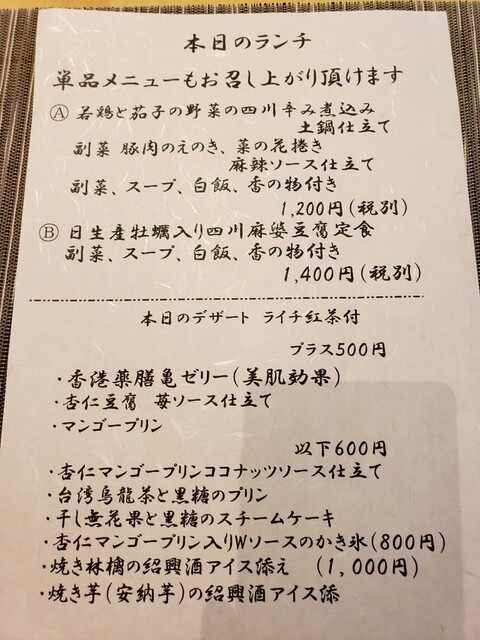 本日のランチ
単品メニューもお召し上がり頂けます
Ⓐ 若鶏と茄子の野菜の四川辛み煮込み
土鍋仕立て
副菜 豚肉のえのき、菜の花捲き
麻辣ソース仕立て
副菜、スープ、白飯、香の物付き
1,200円(税別)
Ⓑ 日生産牡蠣入り四川麻婆豆腐定食
副菜、スープ、白飯、香の物付き
1,400円(税別)
本日のデザート ライチ紅茶付
プラス500円
・香港薬膳亀ゼリー(美肌効果)
・杏仁豆腐 苺ソース仕立て
・マンゴープリン
以下600円
・杏仁マンゴープリンココナッツソース仕立て
・台湾烏龍茶と黒糖のプリン
・干し無花果と黒糖のスチームケーキ
・杏仁マンゴープリン入りWソースのかき氷(800円)
・焼き林檎の紹興酒アイス添え (1,000円)
・焼き芋(安納芋)の紹興酒アイス添